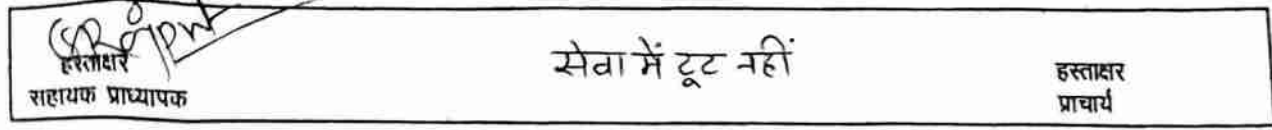 हस्ताक्षर
सहायक प्राध्यापक
सेवा में टूट नहीं
हस्ताक्षर
प्राचार्य